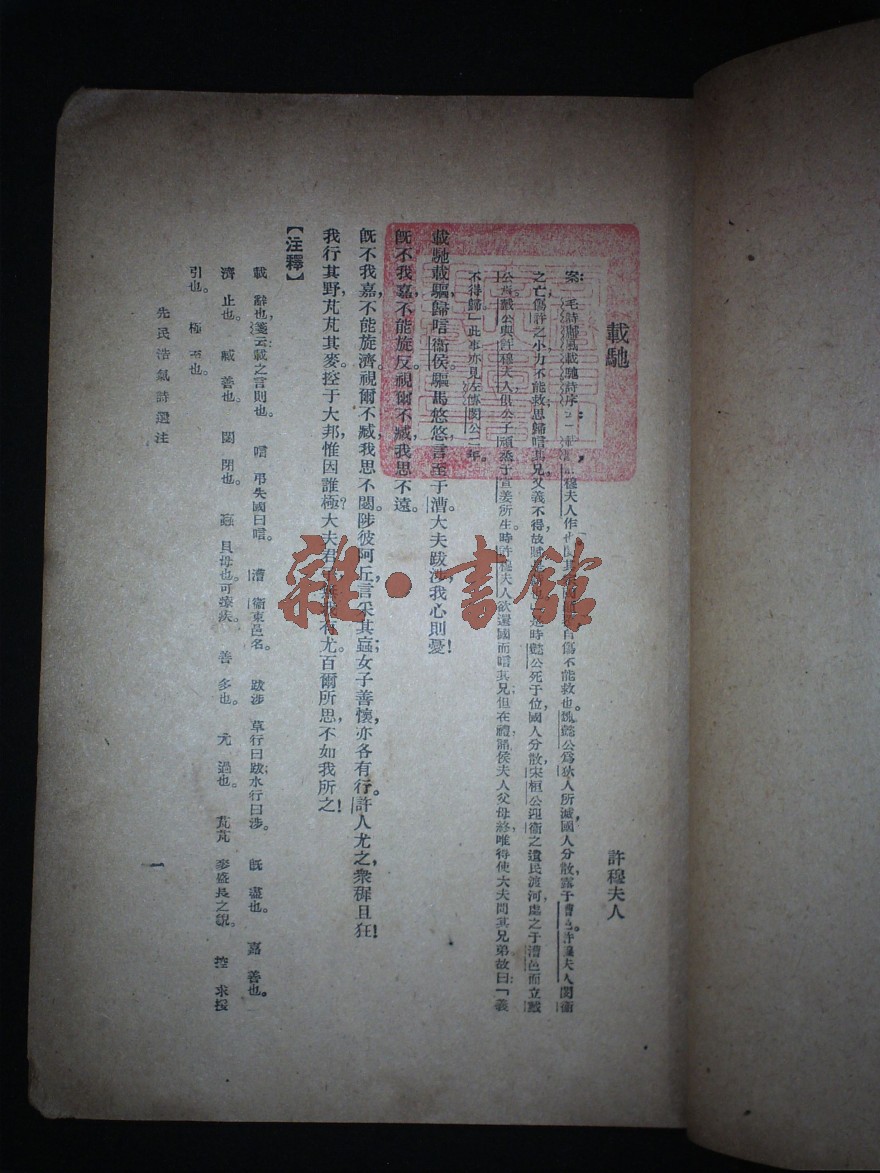 載馳
許穆夫人
案:毛詩鄘風載馳詩序:「載馳,許穆夫人作也。閔其宗國顚覆,自傷不能救也。衛懿公爲狄人所滅,國人分散,露于漕邑。許穆夫人閔衛
之亡,傷許之小,力不能救,思歸唁其兄,又義不得,故賦是詩也。」是時懿公死于位,國人分散,宋桓公迎衛之遺民渡河,處之于漕邑,而立戴
公焉。戴公與許穆夫人俱公子頑烝于宣姜所生。時許穆夫人欲還國而唁其兄,但在禮,諸侯夫人父母終,唯得使大夫問其兄弟,故曰:「義
不得歸」此事亦見左傳閔公二年。
載馳載驅,歸唁衞侯。驅馬悠悠,言至于漕。大夫跋涉,我心則憂!
旣不我嘉,不能旋反。視爾不臧,我思不遠。
旣不我嘉,不能旋濟。視爾不臧,我思不閟。陟彼阿丘,言采其蝱;女子善懷,亦各有行。許人尤之,衆穉且狂!
我行其野,芃芃其麥。控于大邦,惟因誰極?大夫君 有尤。百爾所思,不如我所之!
【注釋】
載 辭也。箋云:載之言則也。 唁 弔失國曰唁。 漕 衞東邑名。 跋涉 草行曰跋,水行曰涉。 旣 盡也。 嘉 善也。
濟 止也。 臧 善也。 閟 閉也。 蝱 貝母也。可療疾。 善 多也。 尤 過也。 芃芃 麥盛長之貌。 控 求援
引也。 極 至也。
先民浩氣詩選注
一
雜·書館